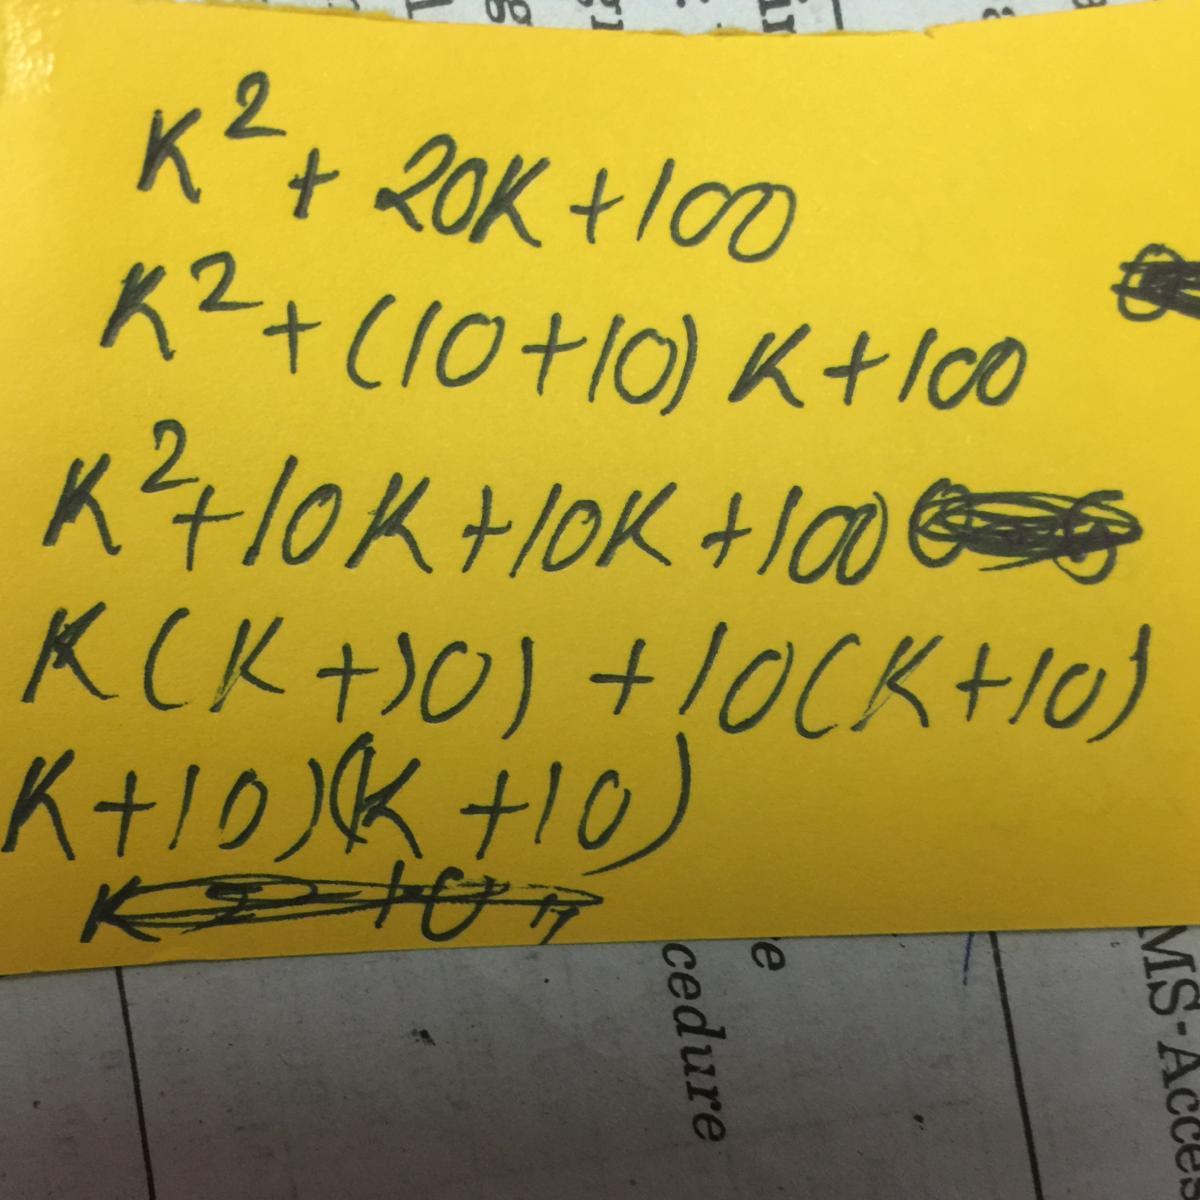 K² + 20K + 100
K² + (10 + 10) K + 100
K² + 10K + 10K + 100
K (K + 10) + 10 (K + 10)
K + 10) (K + 10)
e
cedure
MS-Acces